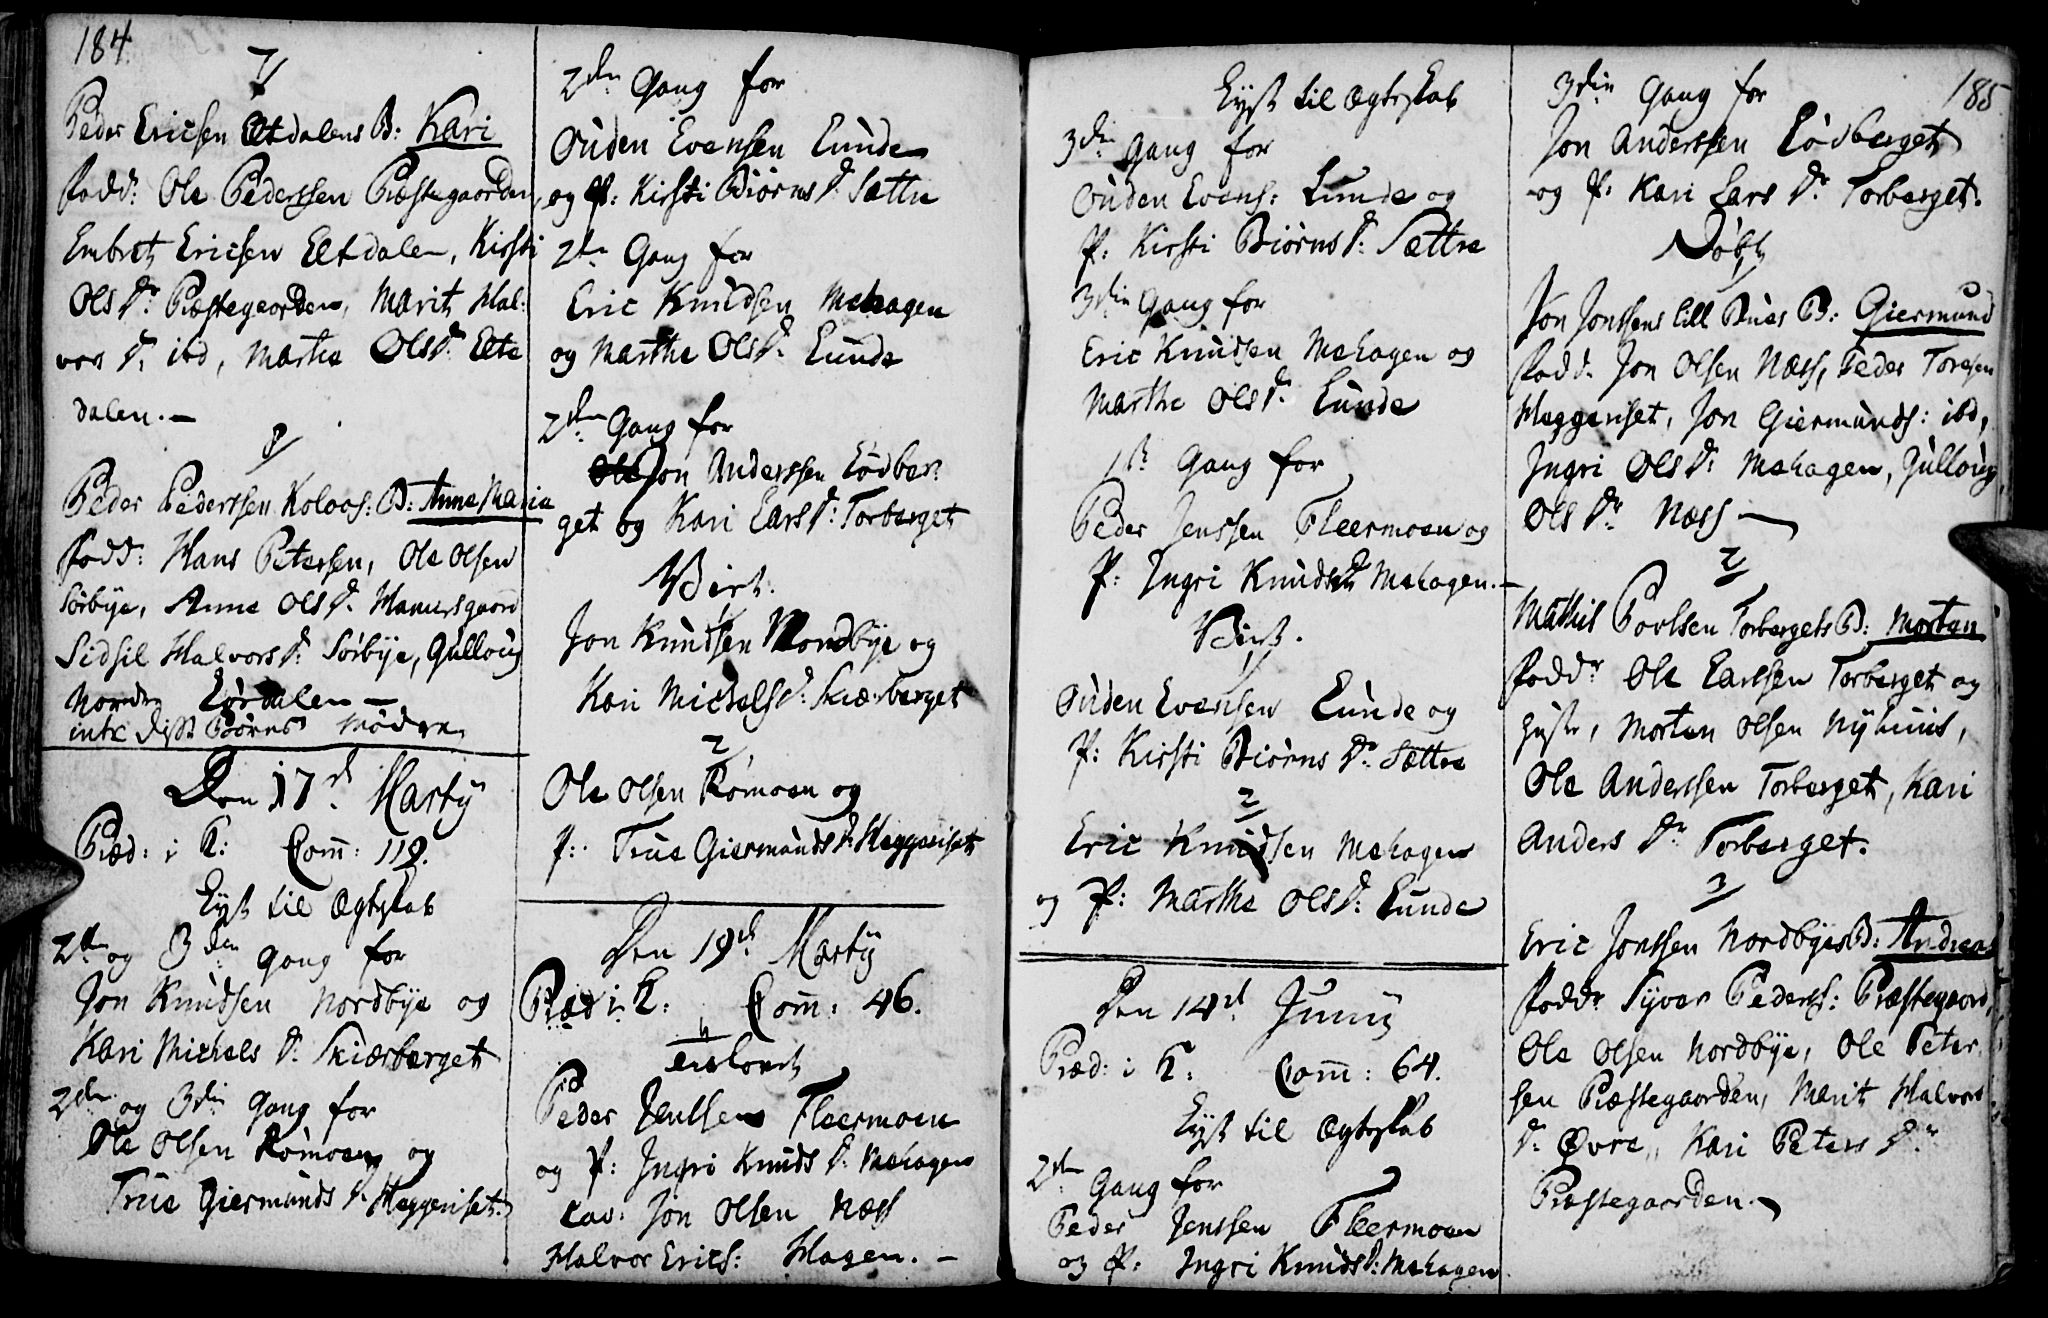 184
7
Peder Ericsen Eltdalens B: Kari
Fadd: Ole Pederssen Præstegaorden,
Embret Ericsen Eltdalen, Kirsti
Ols Dr Præstegaorden, Marit Hal-
vors Dr ibd, Marthe Ols Dr: Elte
dalen. —
8
Peder Pederssen Koloos: B: Anne Maria
Fadd: Hans Petersen, Ole Olsen
Sörbye, Anne Ols Dr Hammersgaord
Sidsil Halvors Dr: Sörbye, Gulloug
Nordre Lördalen —
intr disse Börns Mödre
Den 17de Martij
Præd: i T: Com: 119.
Lyst til Ægteskab
2den og 3den Gang for
Jon Knudsen Nordbye og
Kari Michels Dr Skiærberget
2den og 3die Gang for
Ole Olsen Römoen og
True Giermunds Dr Heggeriset.
2den Gang for
Ouden Evensen Lunde
og P: Kirsti Biörns Dr Sættre
2den Gang for
Eric Knudsen Mehagen
og Marthe Ols Dr: Lunde
2den Gang for
Ole Jon Anderssen Lödber-
get og Kari Lars Dr: Torberget
Virt:
Jon Knudsen Nordbye og
Kari Michels Dr Skiærberget
2
Ole Olsen Römoen og
P: True Giermunds Dr Heggeriset
Den 19de Martij
Præd i T: Com: 46.
Trolovet
Peder Jenssen Fleermoen
og P: Ingri Knuds Dr: Mehagen
Cav: Jon Olsen Næss
Halvor Erics: Hagen. —
Lyst til Ægteskab
3die Gang for
Ouden Evens: Lunde og
P: Kirsti Biörns Dr: Sættre
3die Gang for
Eric Knudsen Mehagen og
Marthe Ols Dr Lunde
1ste Gang for
Peder Jenssen Fleermoen og
P: Ingri Knuds Dr Mehagen. —
Virt.
Ouden Evensen Lunde og
P: Kirsti Biörns Dr Sættre
2
Eric Knudsen Mehagen
og P: Marthe Ols Dr: Lunde
Den 14de Junij
Præd: i T: Com: 64.
Lyst til Ægteskab
2den Gang for
Peder Jenssen Fleermoen
og P: Ingri Knuds Dr: Mehagen
185
3die Gang for
Jon Anderssen Lödberget
og P: Kari Lars Dr Torberget.
Döbt
Jon Jonssens lill Bues B: Giermund
Fadd. Jon Olsen Næss, Peder Toresen
Heggeriset, Jon Giermunds: ibd,
Ingri Ols Dr: Mehagen, Gulloug
Ols Dr Næss —
2
Mathis Povlsen Torbergets B: Morten
Fadd: Ole Larssen Torberget og
Hustr, Morten Olsen Nyhuus,
Ole Anderssen Torberget, Kari
Anders Dr Torberget.
3
Eric Jonssen Nordbyes B: Andreas
Fadd: Syver Peders: Præstegaord,
Ole Olsen Nordbye, Ole Peter
sen Præstegaorden, Marit Halvors
Dr Øvre, Kari Peters Dr
Præstegaorden. —